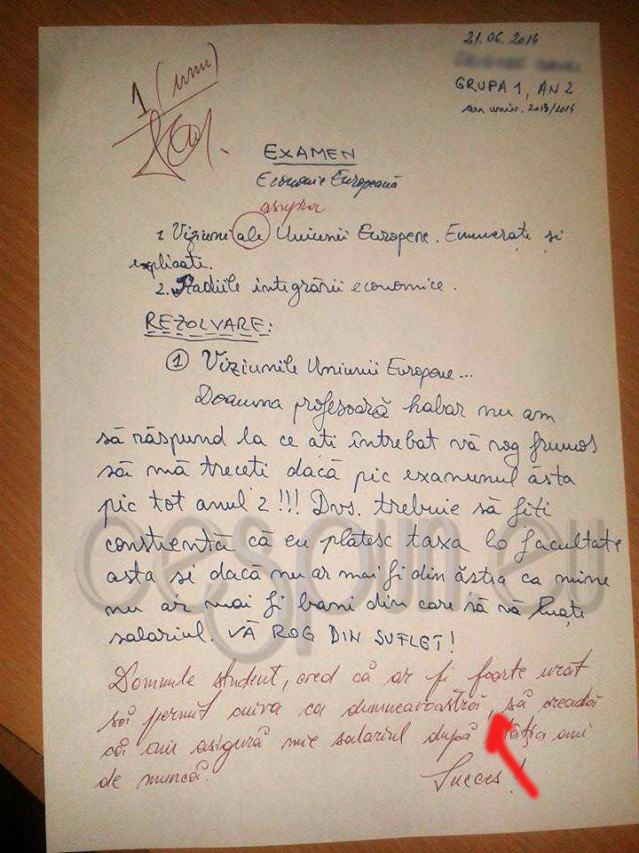 21.06.2014
GRUPA 1, AN 2
an univ. 2013/2014
1 (unu)
EXAMEN
Economie Europeană
asupra
1. Viziuni ale Uniunii Europene. Enumerați și
explicati.
2. Stadiile integrării economice.
REZOLVARE:
① Viziunile Uniunii Europene...
Doamna profesoară habar nu am
să răspund la ce ati întrebat vă rog frumos
să mă treceti dacă pic examenul ăsta
pic tot anul 2 !!! Dvs. trebuie să fiti
constientă că eu plătesc taxa la facultate
asta si dacă nu ar mai fi din ăstia ca mine
nu ar mai fi bani din care să vă luați
salariul. VĂ ROG DIN SUFLET!
Domnule student, cred că ar fi foarte urât
să permit cuiva ca dumneavoastră, să creadă
că îmi asigură mie salariul după ani
de muncă.
Succes!
cespun.eu